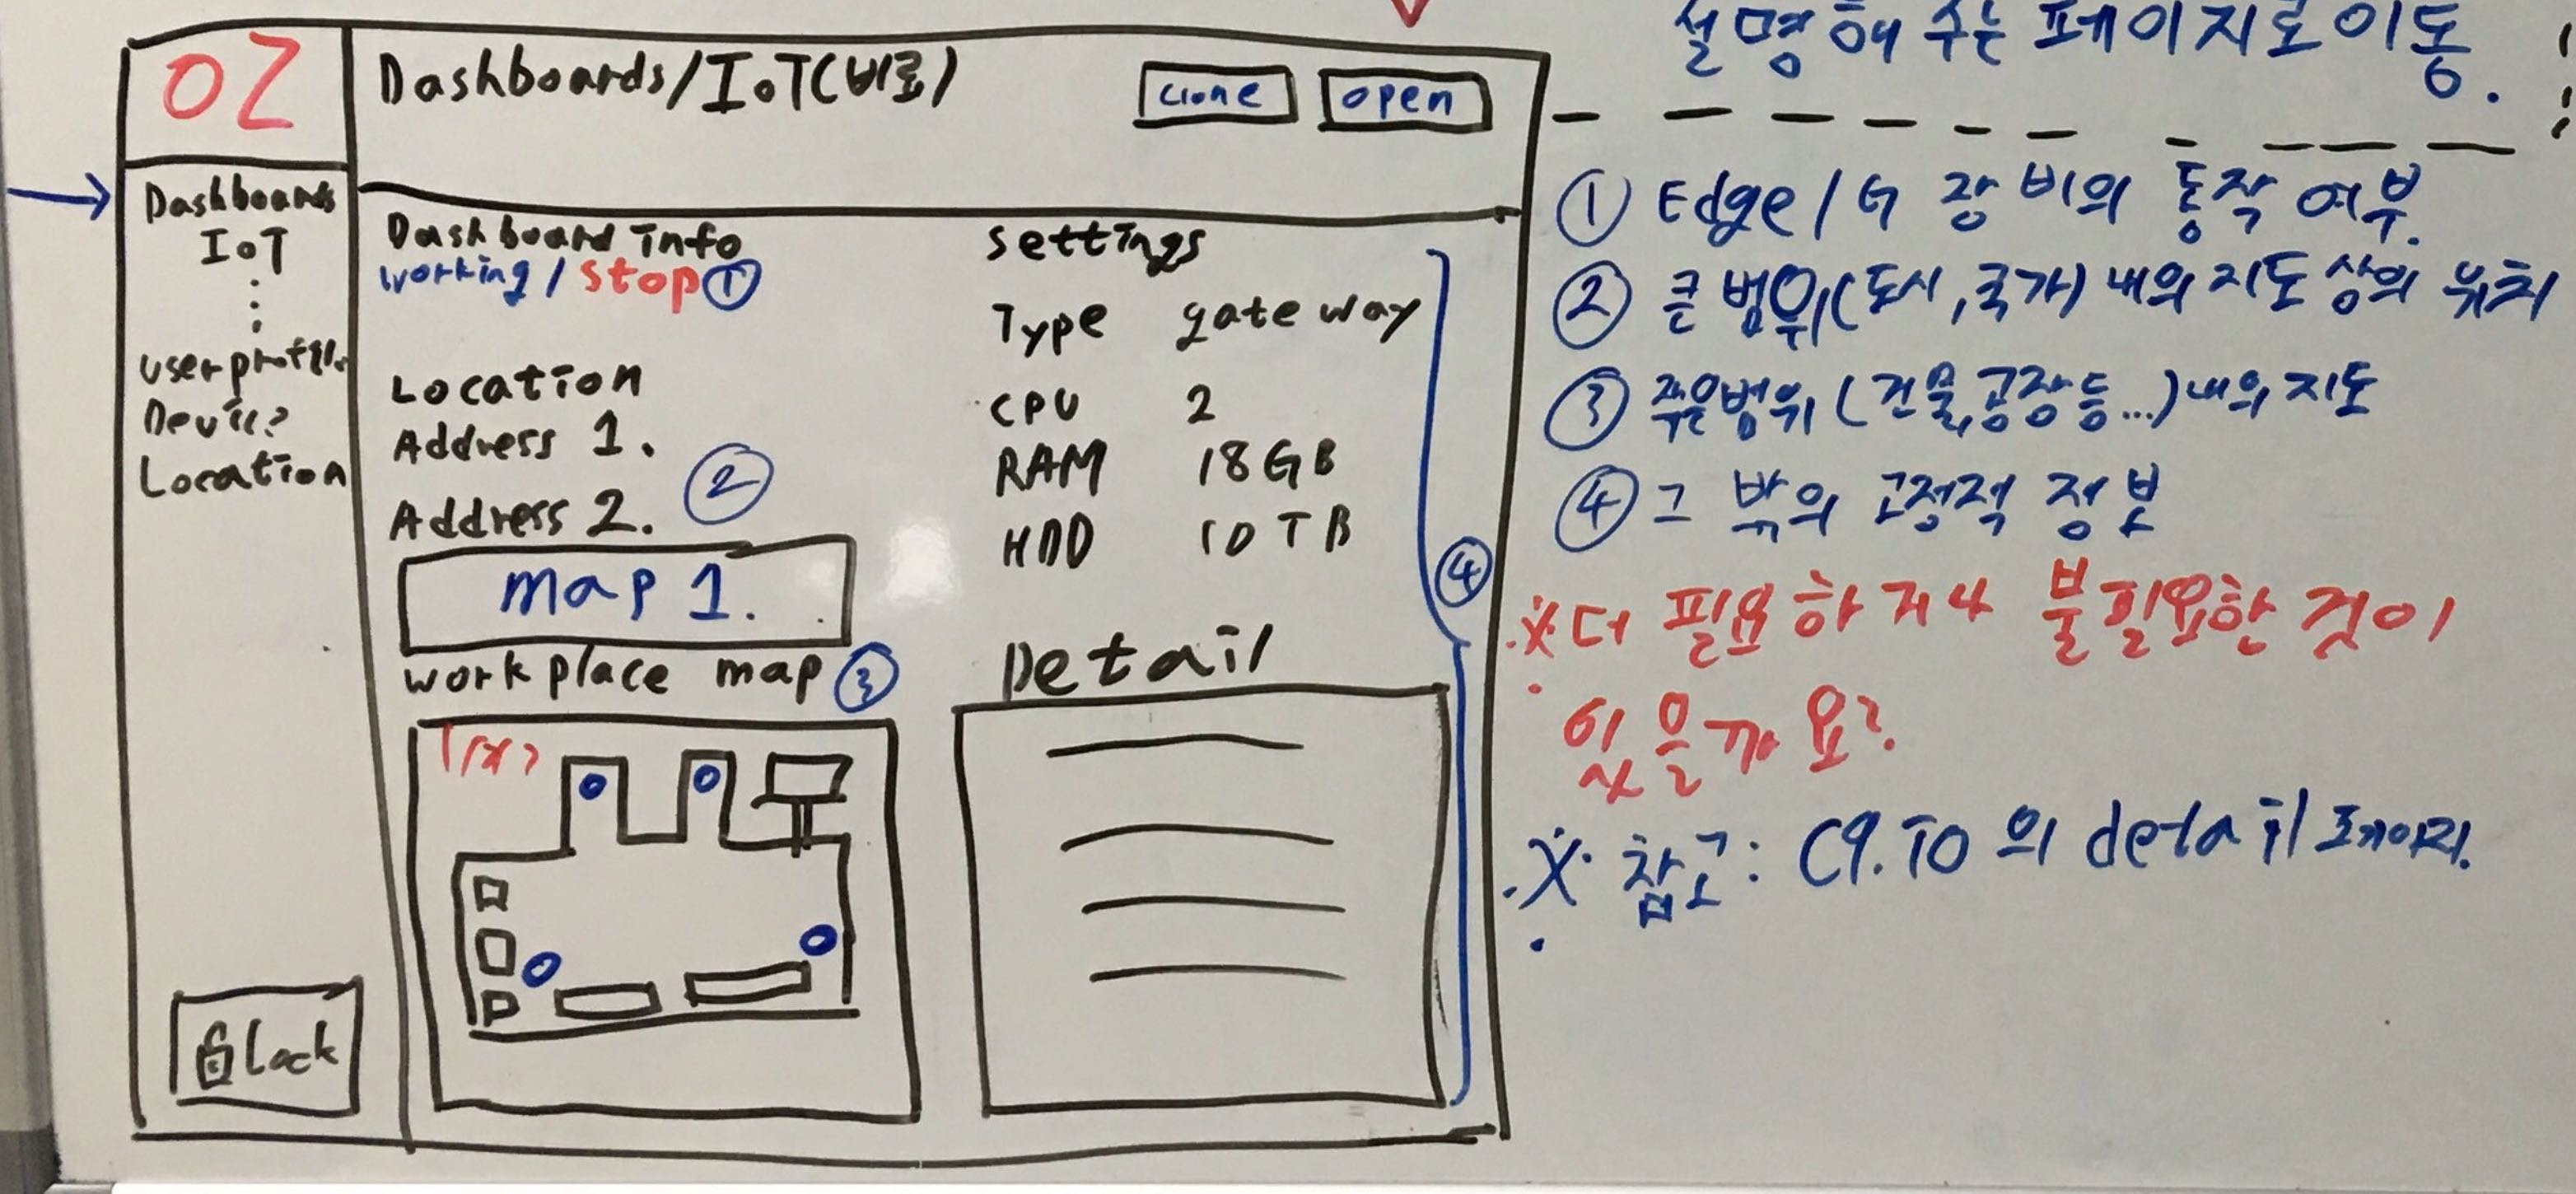 설명해 주는 페이지로 이동.
OZ
Dashboards/IoT(비로)
clone
open
Dashboards
IoT
userprofile
Device
Location
Lock
Dashboard info
working / stop ①
Location
Address 1.
Address 2.
②
map 1.
workplace map ③
settings
Type gateway
CPU 2
RAM 18GB
HDD 10TB
④
Detail
① Edge/G 장비의 동작 여부.
② 큰 범위(도시,국가) 내의 지도 상의 위치
③ 좁은범위 (건물,공장 등...) 내의 지도
④ 그 밖의 고정적 정보
※ 더 필요하거나 불필요한 것이
있을까요?
※ 참고: C9.IO 의 detail 페이지.